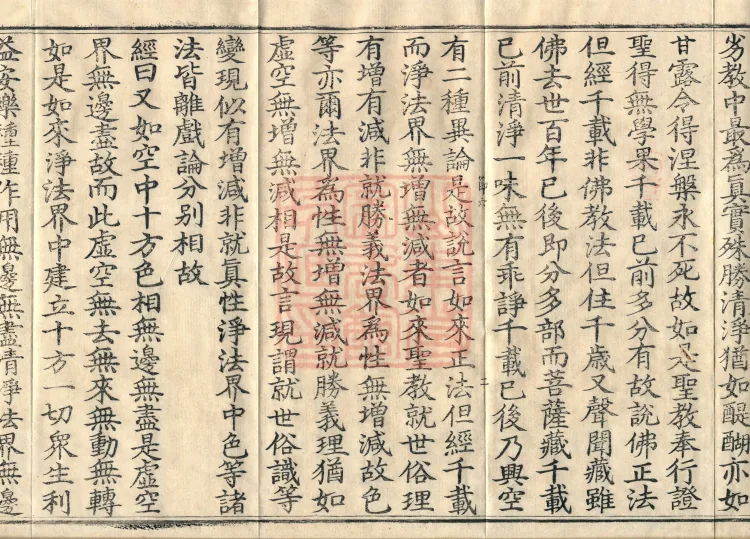 劣教中最為真實殊勝清淨猶如醍醐亦如
甘露令得涅槃永不死故如是聖教奉行證
聖得無學果千載已前多分有故說佛正法
但經千載非佛教法但住千歲又聲聞藏雖
佛去世百年已後即分多部而菩薩藏千載
已前清淨一味無有乖諍千載已後乃興空
有二種異論是故說言如來正法但經千載
而淨法界無增無減者如來聖教就世俗理
有增有減非就勝義法界為性無增減故色
等亦爾法界為性無增無減就勝義理猶如
虛空無增無減相是故言現謂就世俗識等
變現似有增減非就真性淨法界中色等諸
法皆離戲論分別相故
經曰又如空中十方色相無邊無盡是虛空
界無邊盡故而此虛空無去無來無動無轉
如是如來淨法界中建立十方一切眾生利
益安樂種種作用無邊無盡清淨法界無邊